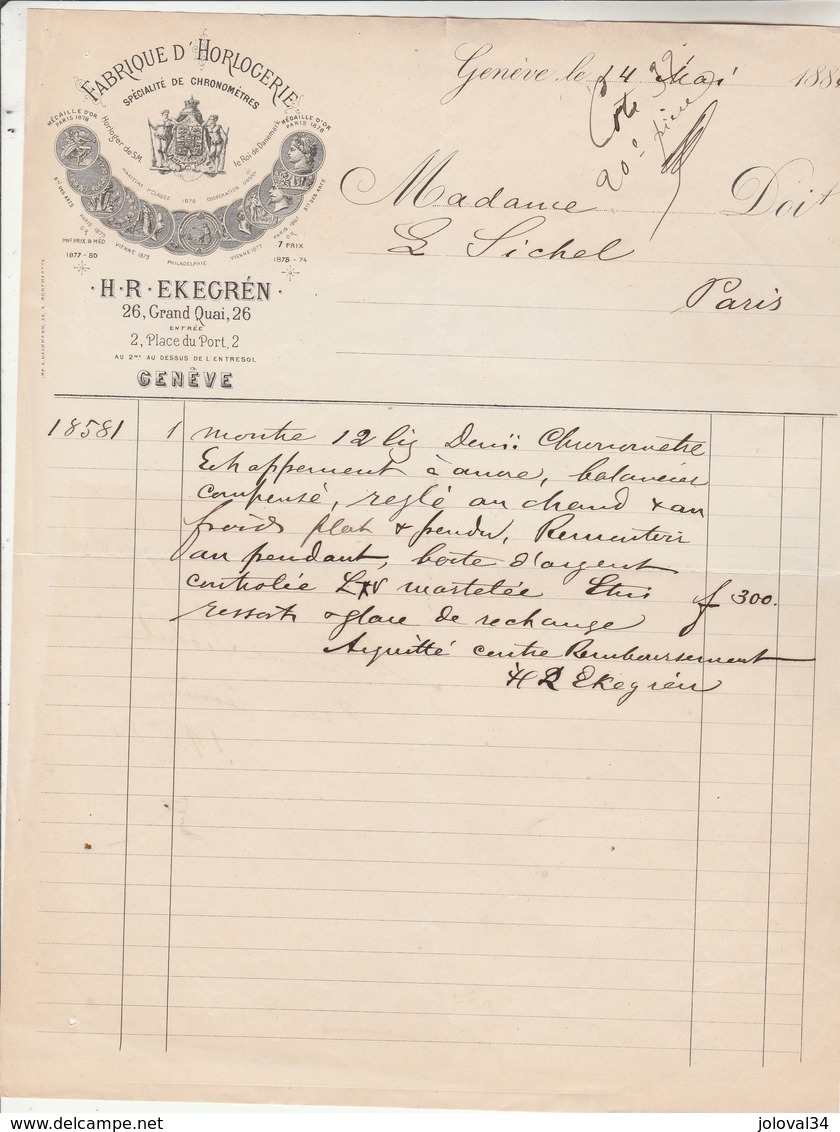 FABRIQUE D'HORLOGERIE
SPÉCIALITÉ DE CHRONOMÈTRES
MÉDAILLE D'OR PARIS 1878
MÉDAILLE D'OR PARIS 1878
Horloger de S.M. le Roi de Danemark
1876
VIENNE 1873
PHILADELPHIE
VIENNE 1873
PARIS 1867
1877-80
7 PRIX
1873-74
H·R·EKEGRÉN
26, Grand Quai, 26
ENTRÉE
2, Place du Port, 2
AU 2me AU DESSUS DE L'ENTRESOL
GENÈVE
Genève, le 14 Mai 188
Cote 32
20e pièce
Madame Doit
L Sichel
Paris
18581 1 montre 12 lig Demi: Chronomètre
Echappement à ancre, balancier
compensé, reglé au chaud & au
froid plat & pendu, Remontoir
au pendant, boite d'argent
controlée martelée Etui f 300.
ressort & glace de rechange
Acquitté contre Remboursement
H R Ekegrén
delcampe.net
joloval34